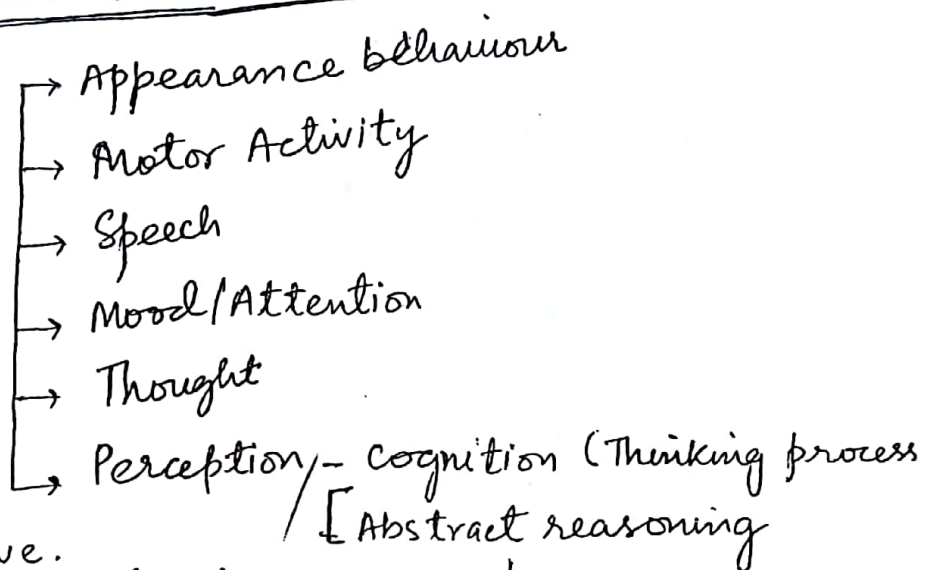 → Appearance behaviour
→ Motor Activity
→ Speech
→ Mood/Attention
→ Thought
→ Perception/- Cognition (Thinking process
[Abstract reasoning
ve.